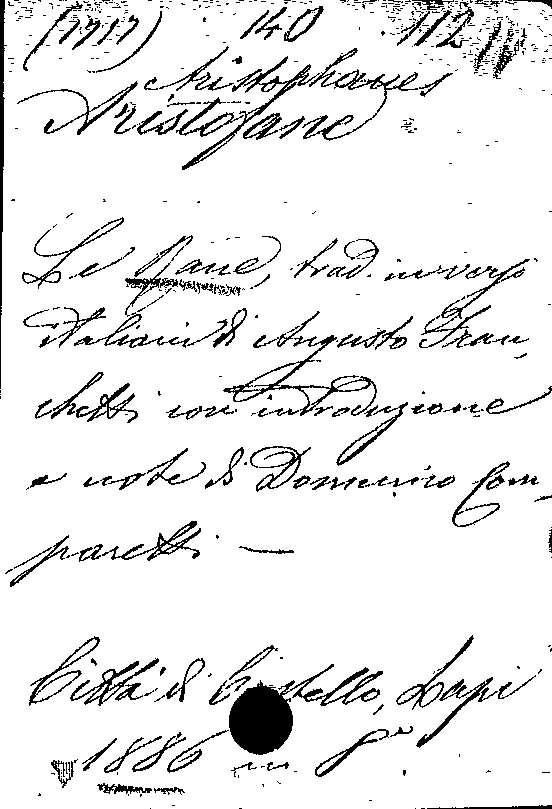 (1717) 140 112
Aristophanes
Aristofane
Le Rane, trad. in versi
italiani di Augusto Fran-
chetti con introduzione
e note di Domenico Com-
paretti —
Città di Castello, Lapi
1886 in 8°